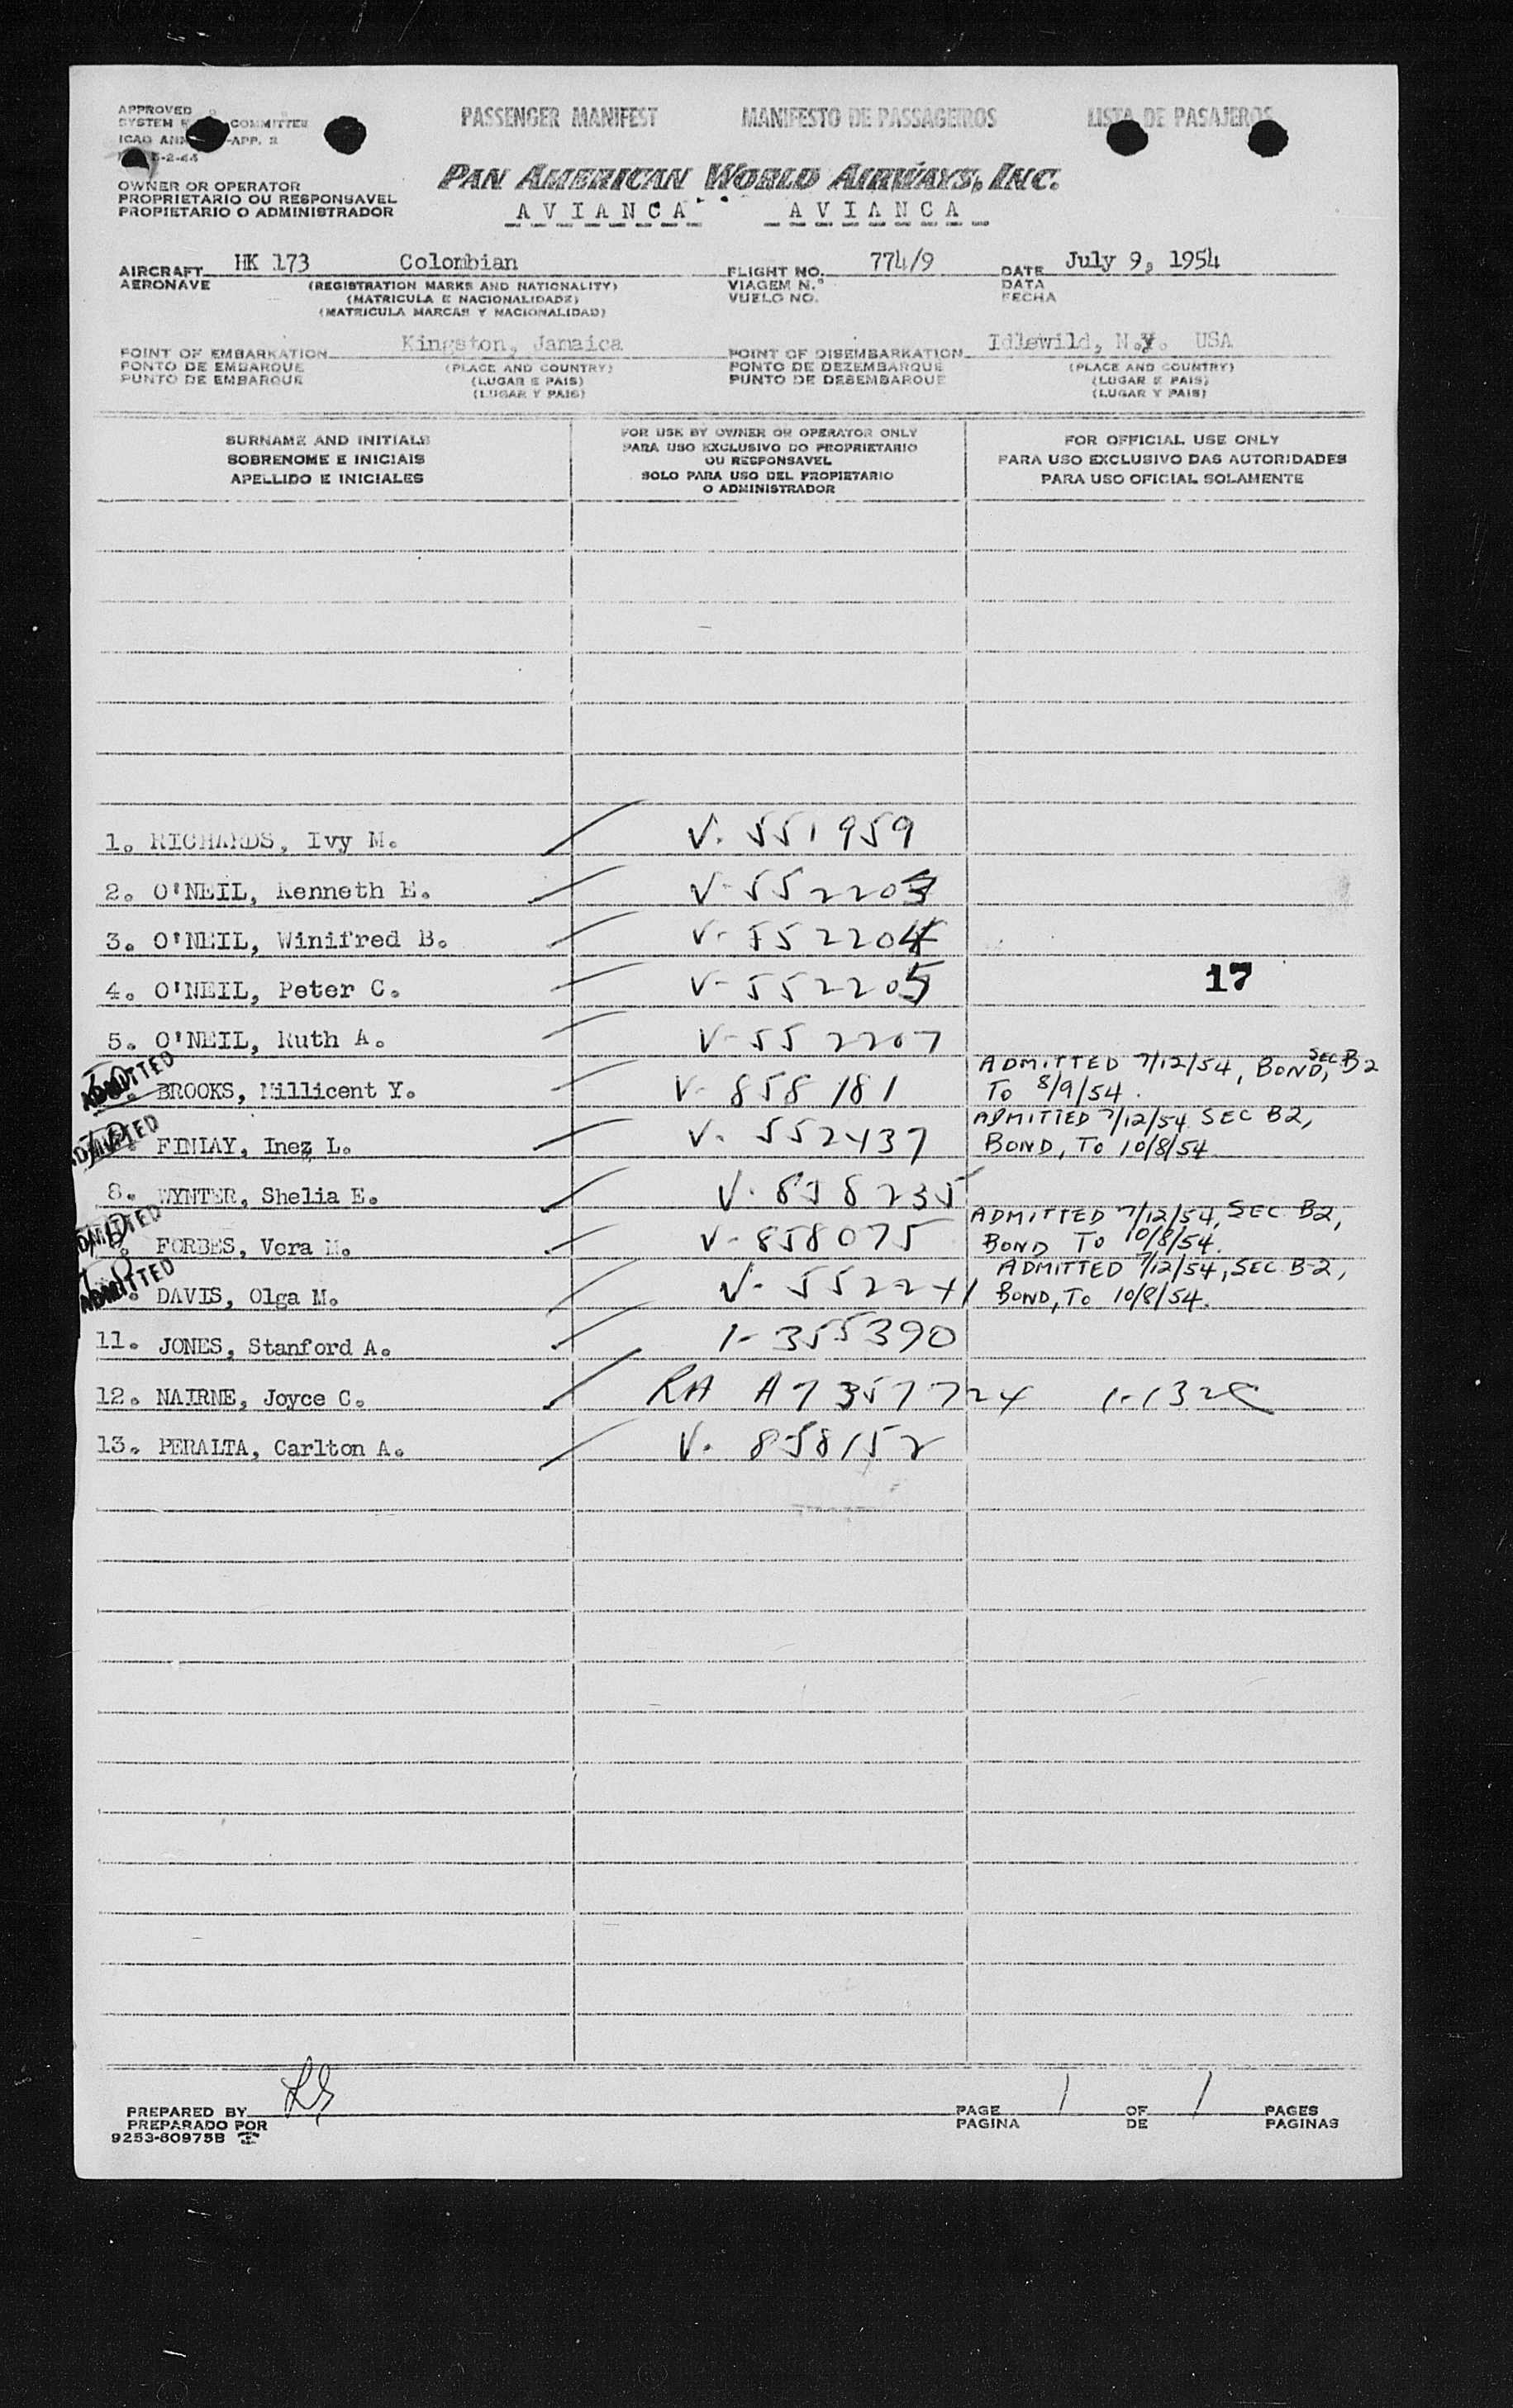 APPROVED
SYSTEM COMMITTEE
ICAO -APP. 2
-2-44
PASSENGER MANIFEST MANIFESTO DE PASSAGEIROS LISTA DE PASAJEROS
PAN AMERICAN WORLD AIRWAYS, INC.
OWNER OR OPERATOR
PROPRIETARIO OU RESPONSAVEL
PROPIETARIO O ADMINISTRADOR
AVIANCA AVIANCA
AIRCRAFT HK 173 Colombian FLIGHT NO. 774/9 DATE July 9, 1954
AERONAVE (REGISTRATION MARKS AND NATIONALITY) VIAGEM N.º DATA
(MATRICULA E NACIONALIDADE) VUELO NO. FECHA
(MATRICULA MARCAS Y NACIONALIDAD)
POINT OF EMBARKATION Kingston, Jamaica POINT OF DISEMBARKATION Idlewild, N.Y. USA
PONTO DE EMBARQUE (PLACE AND COUNTRY) PONTO DE DEZEMBARQUE (PLACE AND COUNTRY)
PUNTO DE EMBARQUE (LUGAR E PAIS) PUNTO DE DESEMBARQUE (LUGAR E PAIS)
(LUGAR Y PAIS) (LUGAR Y PAIS)
SURNAME AND INITIALS
SOBRENOME E INICIAIS
APELLIDO E INICIALES
FOR USE BY OWNER OR OPERATOR ONLY
PARA USO EXCLUSIVO DO PROPRIETARIO
OU RESPONSAVEL
SOLO PARA USO DEL PROPIETARIO
O ADMINISTRADOR
FOR OFFICIAL USE ONLY
PARA USO EXCLUSIVO DAS AUTORIDADES
PARA USO OFICIAL SOLAMENTE
1. RICHARDS, Ivy M. V. 551959
2. O'NEIL, Kenneth E. V-552203
3. O'NEIL, Winifred B. V-552204
4. O'NEIL, Peter C. V-552205 17
5. O'NEIL, Ruth A. V-552207
ADMITTED BROOKS, Millicent Y. V-858181 ADMITTED 7/12/54, BOND, SEC B2
TO 8/9/54.
ADMITTED FINLAY, Inez L. V. 552437 ADMITTED 7/12/54 SEC B2,
BOND, TO 10/8/54
8. WYNTER, Shelia E. V. 858235
ADMITTED FORBES, Vera M. V-858075 ADMITTED 7/12/54, SEC B2,
BOND TO 10/8/54.
ADMITTED DAVIS, Olga M. V-552241 ADMITTED 7/12/54, SEC. B-2,
BOND, TO 10/8/54.
11. JONES, Stanford A. 1-355390
12. NAIRNE, Joyce C. RA A7357724 1-132
13. PERALTA, Carlton A. V. 858152
PREPARED BY PAGE 1 OF 1 PAGES
PREPARADO POR PAGINA DE PAGINAS
9253-60975B